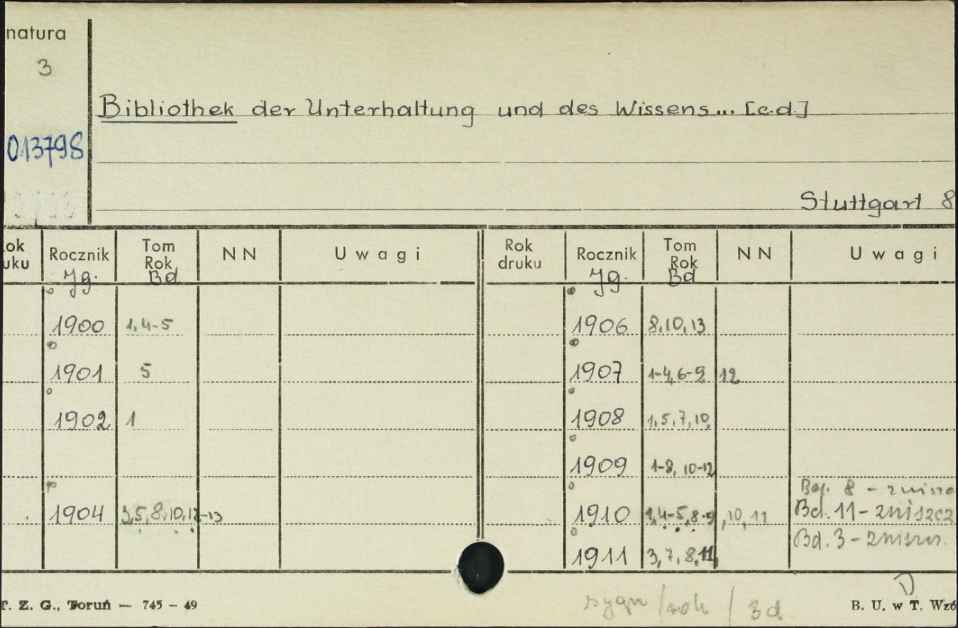 natura
3
Bibliothek der Unterhaltung und des Wissens... [c.d.]
013798
Stuttgart 8
ok uku Rocznik Tom Rok NN Uwagi Rok druku Rocznik Tom Rok NN Uwagi
Jg. Bd Jg. Bd
1900 1,4-5 1906 8,10,13
1901 5 1907 1-4,6-9 12
1902 1 1908 1,5,7,10
1909 1-8, 10-12
Bd. 8 -
1904 3,5,8,10,12-13 1910 1,4-5,8-9,10,11 Bd. 11 - zniszcz
1911 3,7,8,11 Bd. 3 -
T. Z. G., Toruń — 745 — 49 sygn / rok / 3d B. U. w T. Wzó